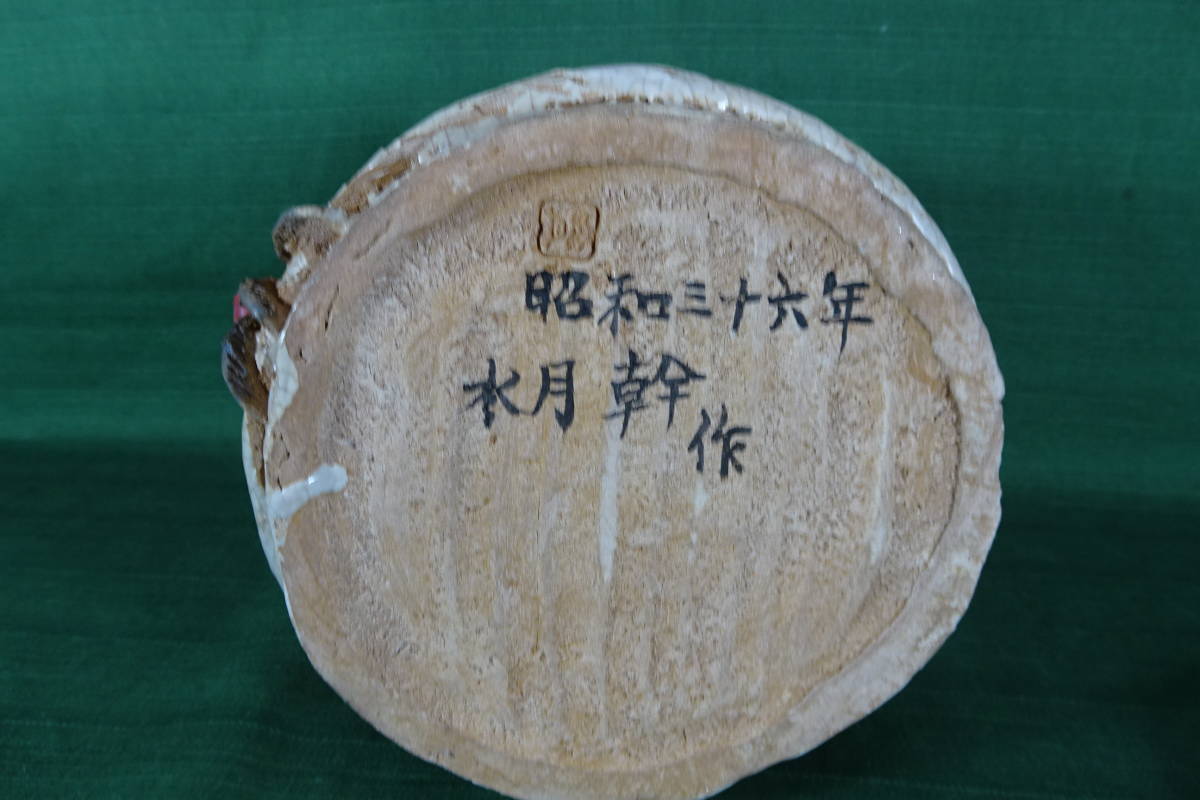 昭和三十六年
水月幹
作